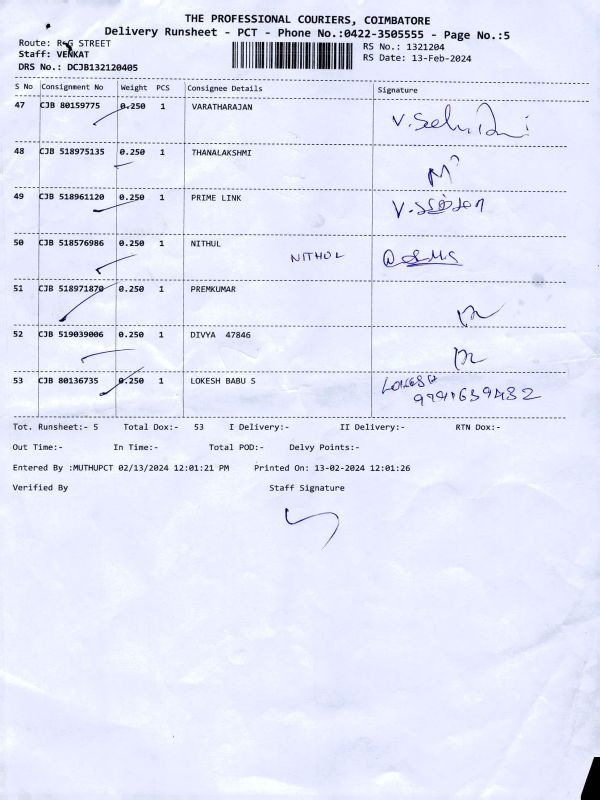 THE PROFESSIONAL COURIERS, COIMBATORE
Delivery Runsheet - PCT - Phone No.:0422-3505555 - Page No.:5
Route: R G STREET
RS No.: 1321204
Staff: VENKAT
RS Date: 13-Feb-2024
DRS No.: DCJB132120405
S No Consignment No Weight PCS Consignee Details Signature
47 CJB 80159775 0.250 1 VARATHARAJAN
48 CJB 518975135 0.250 1 THANALAKSHMI
49 CJB 518961120 0.250 1 PRIME LINK
50 CJB 518576986 0.250 1 NITHUL
NITHUL
51 CJB 518971870 0.250 1 PREMKUMAR
52 CJB 519039006 0.250 1 DIVYA 47846
53 CJB 80136735 0.250 1 LOKESH BABU S LOKESH
Tot. Runsheet:- 5 Total Dox:- 53 I Delivery:- II Delivery:- RTN Dox:-
Out Time:- In Time:- Total POD:- Delvy Points:-
Entered By :MUTHUPCT 02/13/2024 12:01:21 PM Printed On: 13-02-2024 12:01:26
Verified By Staff Signature